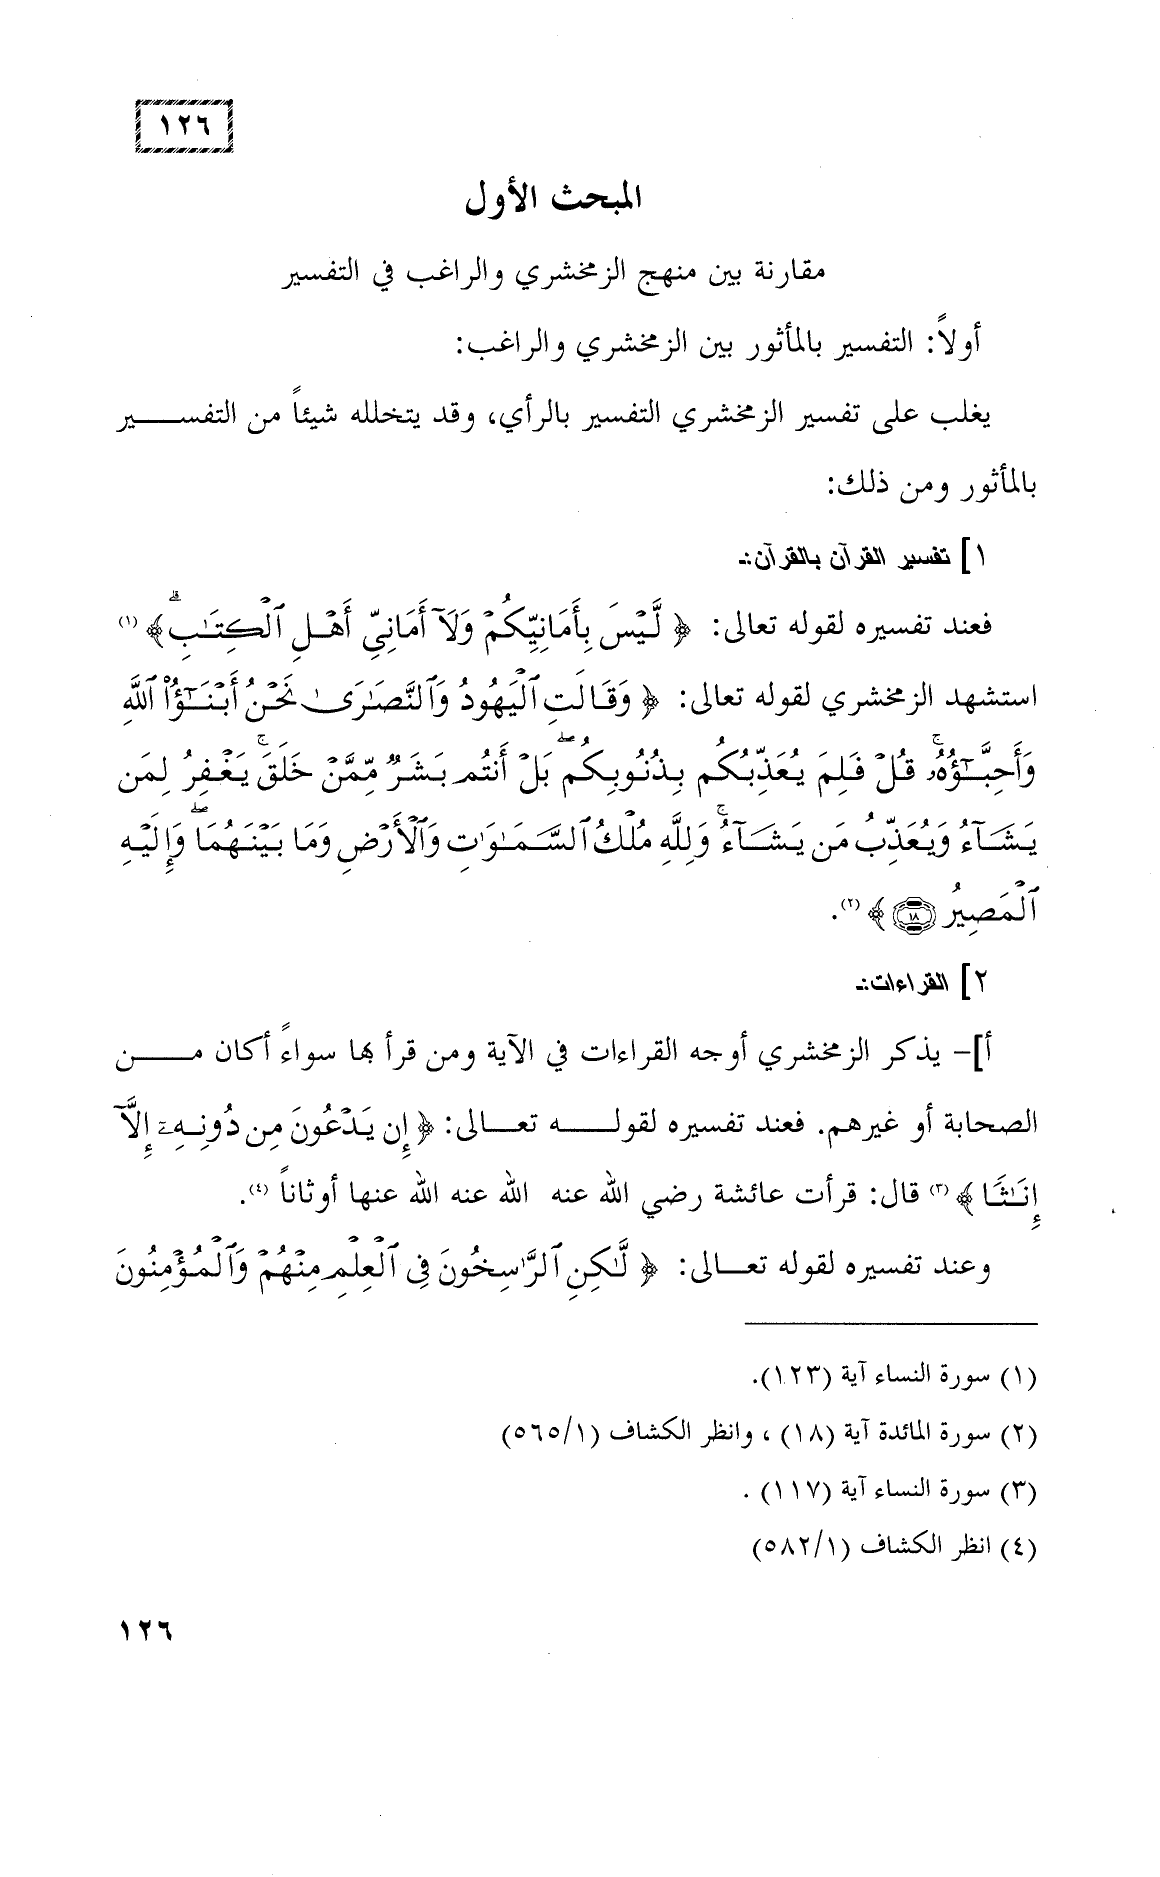 ١٢٦
المبحث الأول
مقارنة بين منهج الزمخشري والراغب في التفسير
أولاً: التفسير بالمأثور بين الزمخشري والراغب:
يغلب على تفسير الزمخشري التفسير بالرأي، وقد يتخلله شيئاً من التفســـير
بالمأثور ومن ذلك:
١] تفسير القرآن بالقرآن:ـ
فعند تفسيره لقوله تعالى: ﴿ لَّيْسَ بِأَمَانِيِّكُمْ وَلَآ أَمَانِيِّ أَهْلِ ٱلْكِتَٰبِ ۗ ﴾ (١)
استشهد الزمخشري لقوله تعالى: ﴿ وَقَالَتِ ٱلْيَهُودُ وَٱلنَّصَٰرَىٰ نَحْنُ أَبْنَٰٓؤُا۟ ٱللَّهِ
وَأَحِبَّٰٓؤُهُۥ ۚ قُلْ فَلِمَ يُعَذِّبُكُم بِذُنُوبِكُم ۖ بَلْ أَنتُم بَشَرٌ مِّمَّنْ خَلَقَ ۚ يَغْفِرُ لِمَن
يَشَآءُ وَيُعَذِّبُ مَن يَشَآءُ ۚ وَلِلَّهِ مُلْكُ ٱلسَّمَٰوَٰتِ وَٱلْأَرْضِ وَمَا بَيْنَهُمَا ۖ وَإِلَيْهِ
ٱلْمَصِيرُ ١٨ ﴾ (٢).
٢] القراءات:ـ
أ]- يذكر الزمخشري أوجه القراءات في الآية ومن قرأ بها سواءً أكان مـــن
الصحابة أو غيرهم. فعند تفسيره لقولـــه تعـــالى: ﴿ إِن يَدْعُونَ مِن دُونِهِۦٓ إِلَّآ
إِنَٰثًا ﴾ (٣) قال: قرأت عائشة رضي الله عنه الله عنه الله عنها أوثاناً (٤).
وعند تفسيره لقوله تعـــالى: ﴿ لَّٰكِنِ ٱلرَّٰسِخُونَ فِى ٱلْعِلْمِ مِنْهُمْ وَٱلْمُؤْمِنُونَ
(١) سورة النساء آية (١٢٣).
(٢) سورة المائدة آية (١٨) ، وانظر الكشاف (٥٦٥/١)
(٣) سورة النساء آية (١١٧) .
(٤) انظر الكشاف (٥٨٢/١)
١٢٦